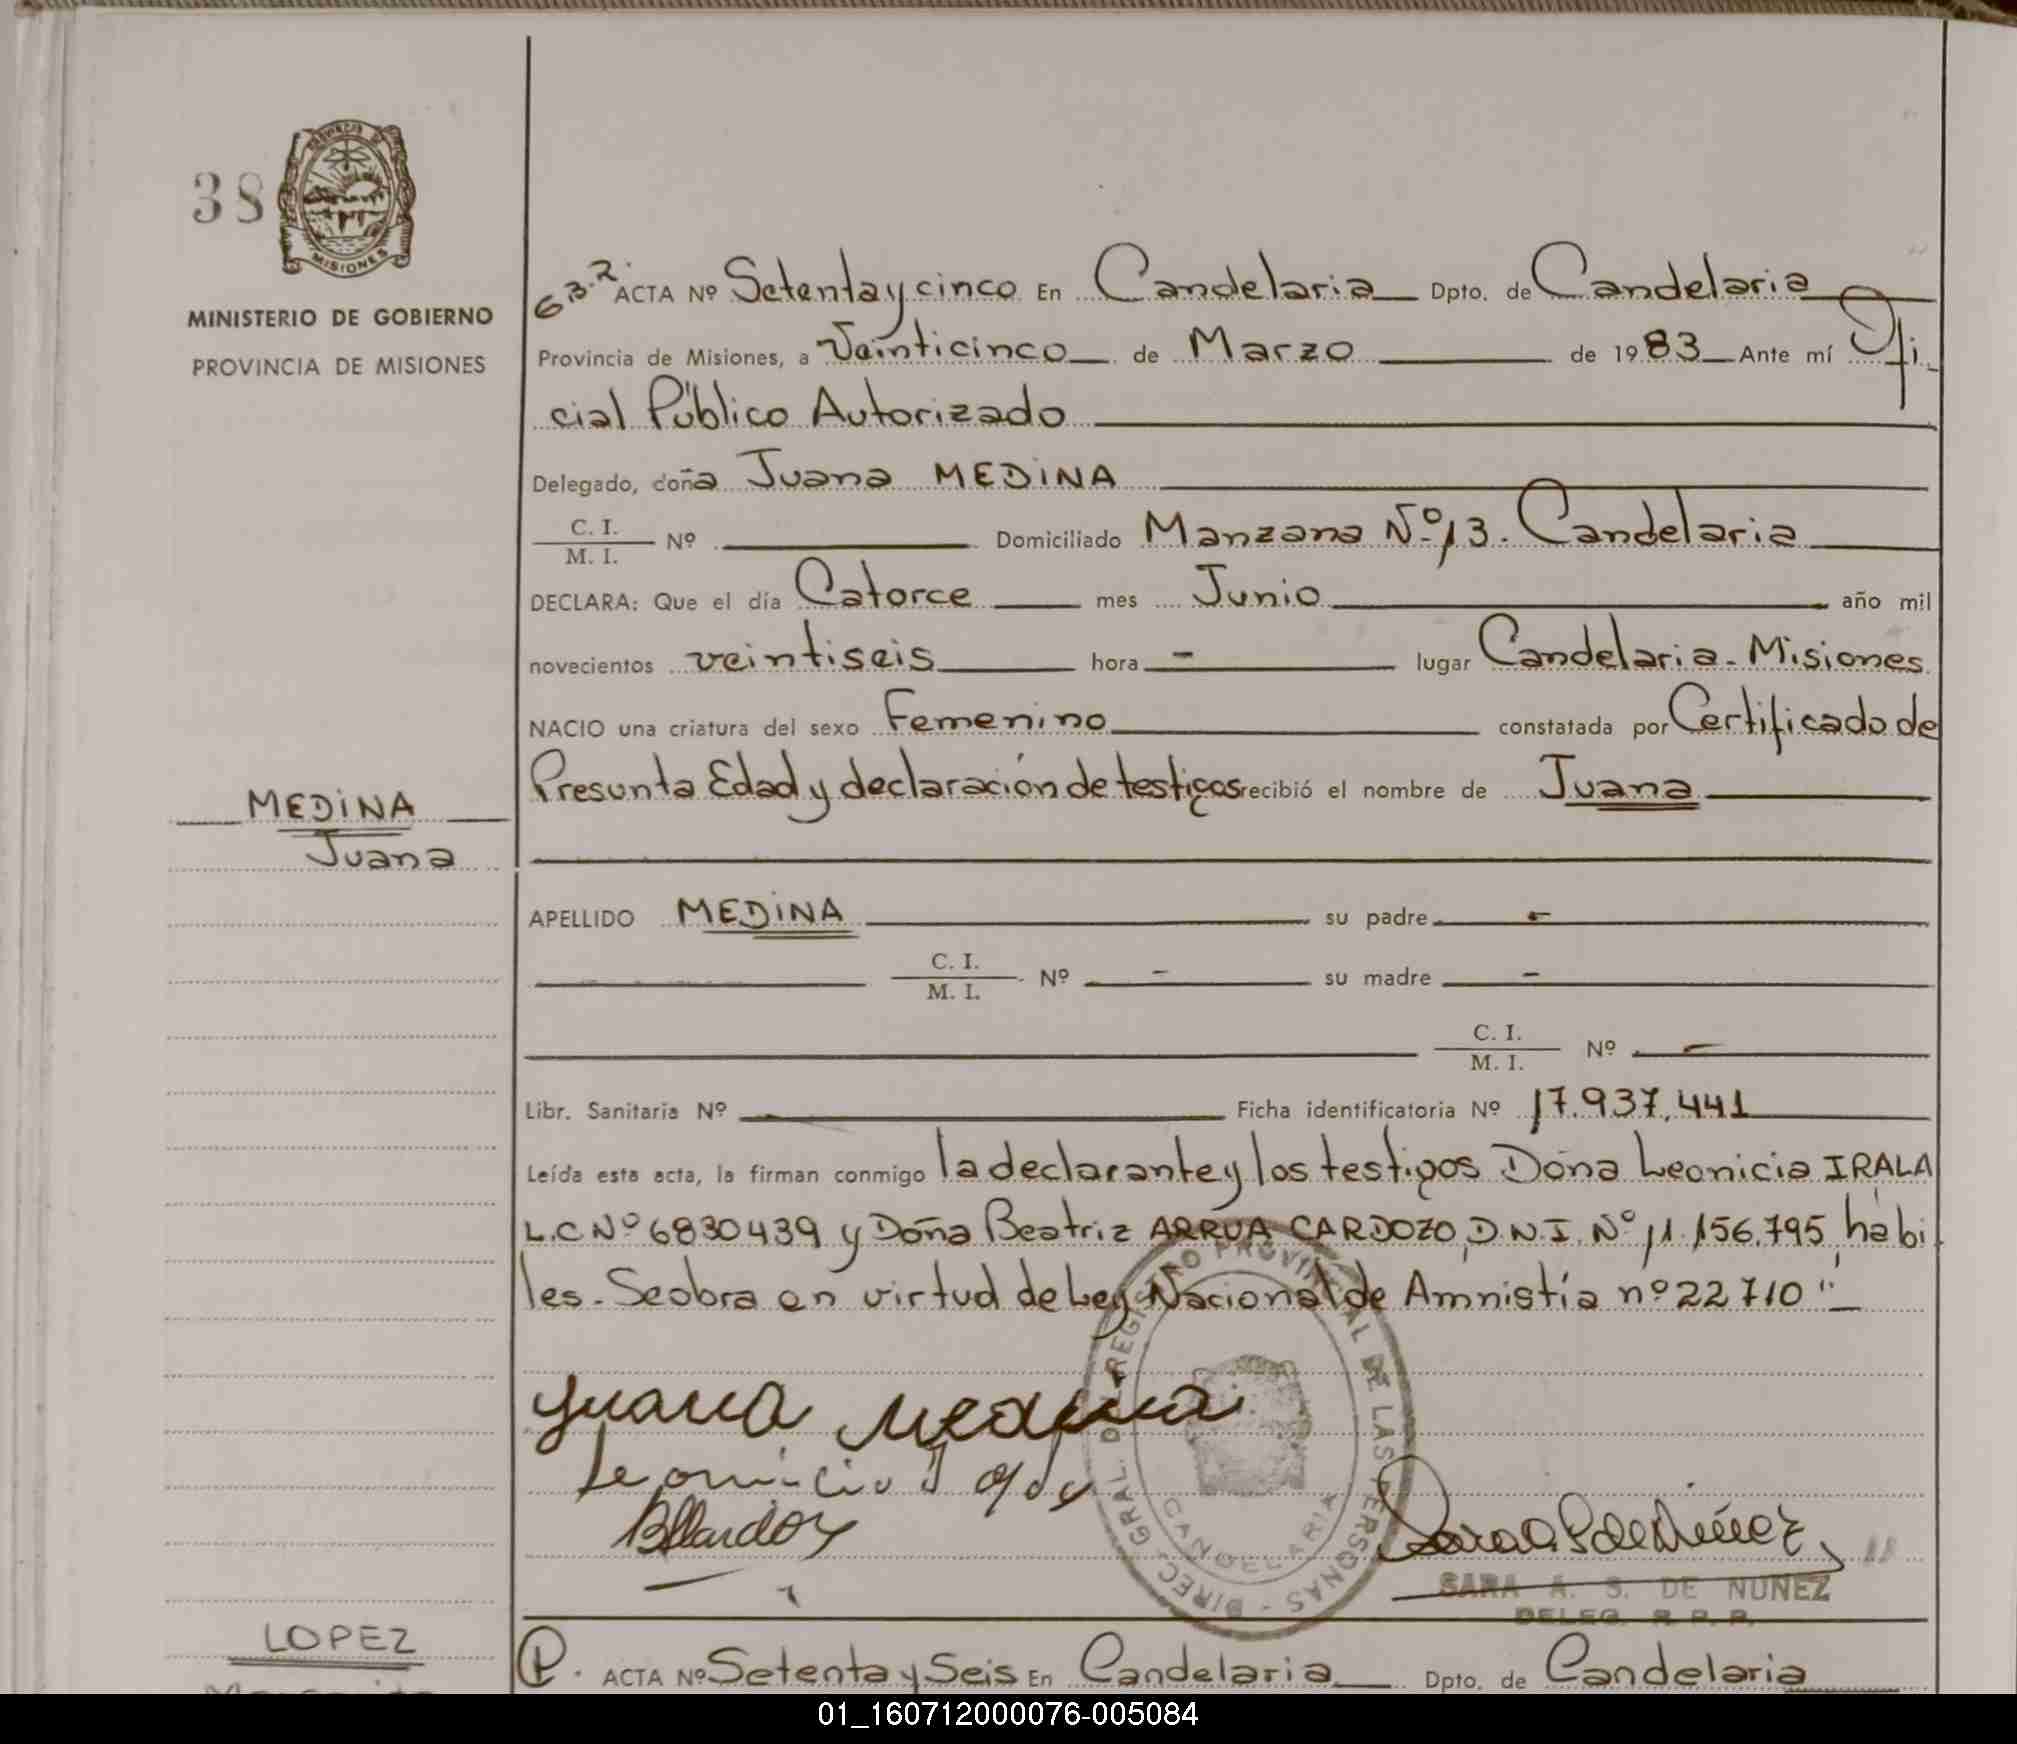 38
PROVINCIA DE
MISIONES
MINISTERIO DE GOBIERNO
PROVINCIA DE MISIONES
63.2 ACTA Nº Setenta y cinco En Candelaria Dpto. de Candelaria
Provincia de Misiones, a Veinticinco de Marzo de 1983 Ante mí Ofi
cial Público Autorizado
Delegado, doña Juana MEDINA
C. I.
M. I. Nº Domiciliado Manzana Nº 13. Candelaria
DECLARA: Que el día Catorce mes Junio año mil
novecientos veintiseis hora - lugar Candelaria - Misiones
NACIO una criatura del sexo Femenino constatada por Certificado de
Presunta Edad y declaración de testigos recibió el nombre de Juana
MEDINA
Juana
APELLIDO MEDINA su padre -
C. I.
M. I. Nº - su madre -
C. I.
M. I. Nº -
Libr. Sanitaria Nº Ficha identificatoria Nº 17.937.441
Leída esta acta, la firman conmigo la declarante y los testigos Doña Leonicia IRALA
L.C Nº 6830439 y Doña Beatriz ARRUA CARDOZO, D.N.I. Nº 11.156.795, habi
les. Se obra en virtud de Ley Nacional de Amnistía nº 22710"
Juana Medina
DIREC. GRAL. DEL REGISTRO PROVINCIAL DE LAS PERSONAS -
CANDELARIA
SARA A. S. DE NUÑEZ
DELEG. R. P. P.
LOPEZ
P. ACTA Nº Setenta y Seis En Candelaria Dpto. de Candelaria
01_160712000076-005084